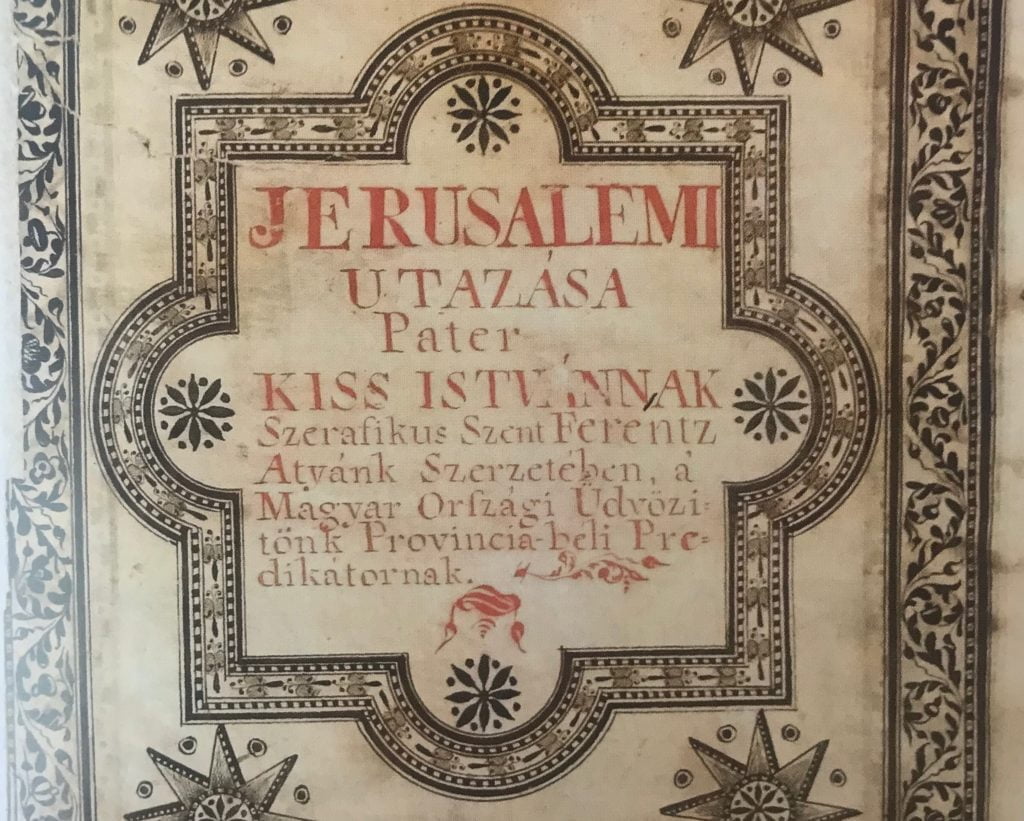 JERUSALEMI
UTAZÁSA
Pater
KISS ISTVÁNNAK
Szerafikus Szent Ferentz
Atyánk Szerzetében, a'
Magyar Orſzági Üdvözi=
tönk Provincia-beli Pre=
dikátornak.